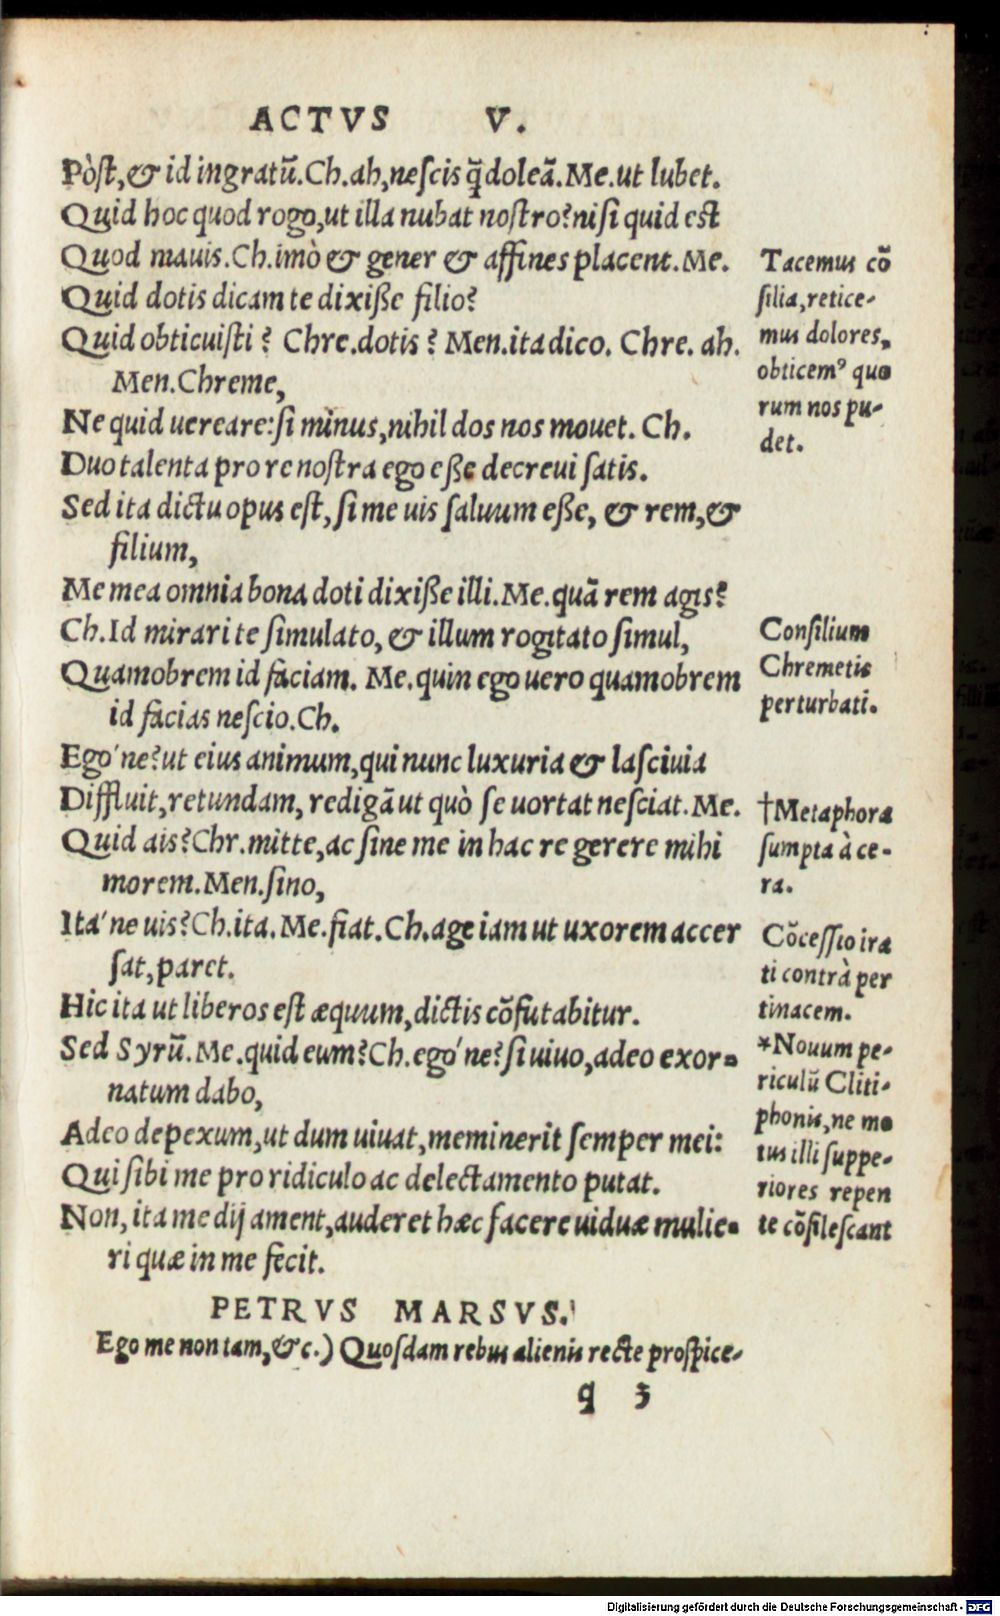 ACTVS V.
Pòst, & id ingratū. Ch. ah, nescis q̄ doleā. Me. ut lubet.
Quid hoc quod rogo, ut illa nubat nostro? nisi quid est
Quod mauis. Ch. imò & gener & affines placent. Me.
Quid dotis dicam te dixiße filio?
Quid obticuisti? Chre. dotis? Men. ita dico. Chre. ah.
Men. Chreme,
Ne quid uereare: si minus, nihil dos nos mouet. Ch.
Duo talenta pro re nostra ego eße decreui satis.
Sed ita dictu opus est, si me uis saluum eße, & rem, &
filium,
Me mea omnia bona doti dixiße illi. Me. quā rem agis?
Ch. Id mirari te simulato, & illum rogitato simul,
Quamobrem id faciam. Me. quin ego uero quamobrem
id facias nescio. Ch.
Ego'ne? ut eius animum, qui nunc luxuria & lasciuia
Diffluit, retundam, redigā ut quò se uortat nesciat. Me.
Quid ais? Chr. mitte, ac sine me in hac re gerere mihi
morem. Men. sino,
Ita'ne uis? Ch. ita. Me. fiat. Ch. age iam ut uxorem accer
sat, paret.
Hic ita ut liberos est æquum, dictis cōfutabitur.
Sed Syrū. Me. quid eum? Ch. ego'ne? si uiuo, adeo exor-
natum dabo,
Adeo depexum, ut dum uiuat, meminerit semper mei:
Qui sibi me pro ridiculo ac delectamento putat.
Non, ita me dij ament, auderet hæc facere uiduæ mulie-
ri quæ in me fecit.
PETRVS MARSVS.
Ego me non tam, &c.) Quosdam rebus alienis recte prospice-
q 3
Tacemus cō
silia, retice-
mus dolores,
obticemꝰ quo
rum nos pu-
det.
Consilium
Chremetis
perturbati.
†Metaphora
sumpta à ce-
ra.
Cōcessio ira
ti contrà per
tinacem.
*Nouum pe-
riculū Cliti-
phonis, ne mo
tus illi suppe-
riores repen
te cōsilescant
Digitalisierung gefördert durch die Deutsche Forschungsgemeinschaft - DFG